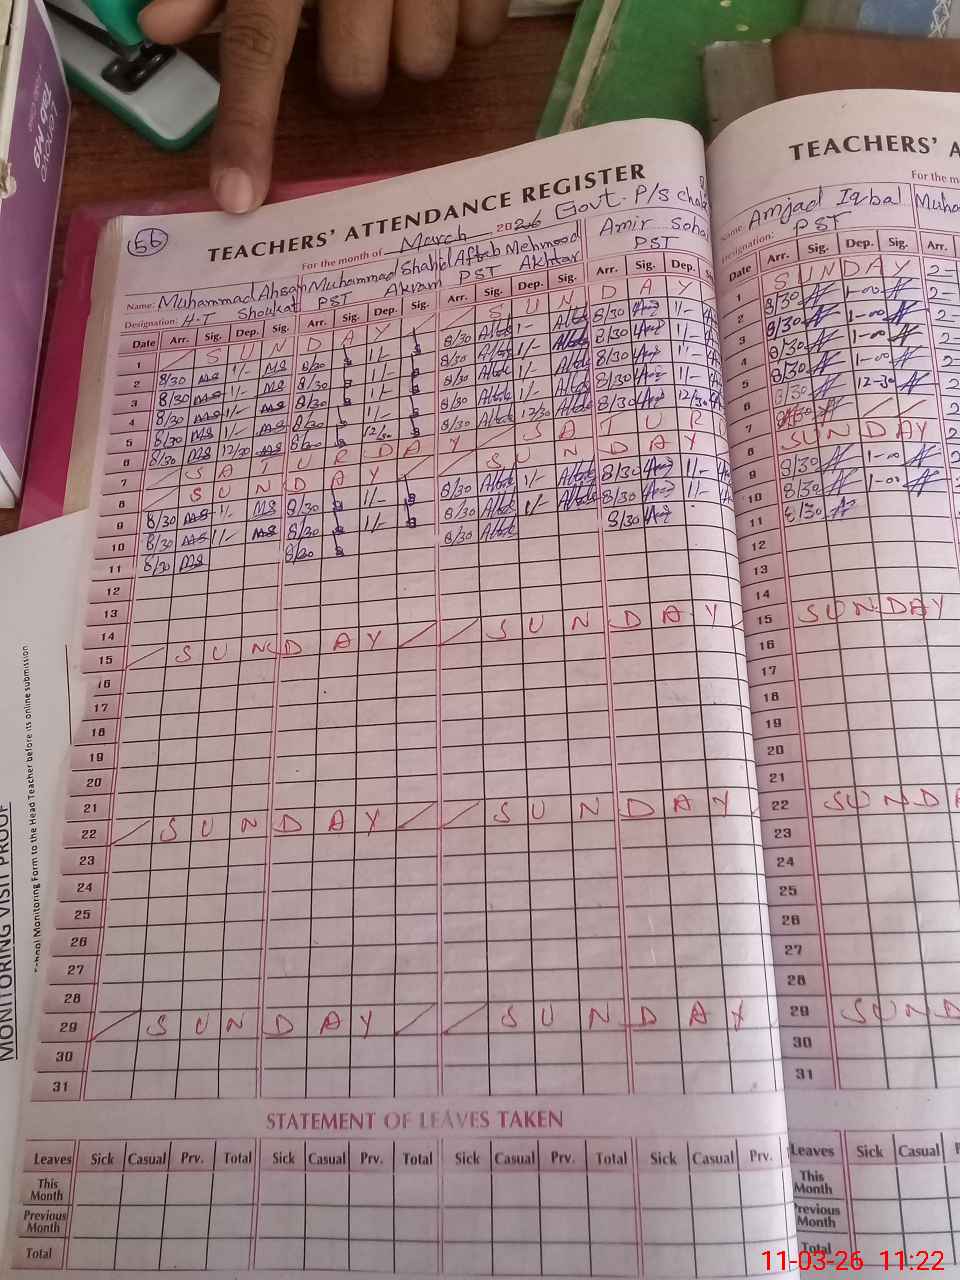 Lenovo
TAB M9
56
TEACHERS' ATTENDANCE REGISTER
For the month of March 2026 Govt. P/S
Name: Muhammad Ahsan Muhammad Shahid Aftab Mehmood Amir
Designation: H-T Shoukat PST Akram PST Akhtar PST
Date Arr. Sig. Dep. Sig. Arr. Sig. Dep. Sig. Arr. Sig. Dep. Sig. Arr. Sig. Dep.
1 S U N D A Y S U N D A Y
2 8/30 MS 1/- MS 8/30 1/- 8/30 1/- 8/30 1/-
3 8/30 MS 1/- MS 8/30 1/- 8/30 1/- 8/30 1/-
4 8/30 MS 1/- MS 8/30 1/- 8/30 1/- 8/30 1/-
5 8/30 MS 1/- MS 8/30 1/- 8/30 1/- 8/30 1/-
6 8/30 MS 12/30 MS 8/30 12/30 8/30 12/30 8/30 12/30
7 S A T U R D A Y S A T U R
8 S U N D A Y S U N D A Y
9 8/30 MS 1/- MS 8/30 1/- 8/30 1/- 8/30 1/-
10 8/30 MS 1/- MS 8/30 1/- 8/30 1/- 8/30 1/-
11 8/30 MS 8/30 8/30 8/30
12
13
14
15 S U N D A Y S U N D A Y
16
17
18
19
20
21
22 S U N D A Y S U N D A Y
23
24
25
26
27
28
29 S U N D A Y S U N D A Y
30
31
STATEMENT OF LEAVES TAKEN
Leaves Sick Casual Prv. Total Sick Casual Prv. Total Sick Casual Prv. Total Sick Casual Prv.
This
Month
Previous
Month
Total
TEACHERS' A
For the m
Name: Amjad Iqbal
Designation: PST
Date Arr. Sig. Dep. Sig. Arr.
1 S U N D A Y
2 8/30 1-00
3 8/30 1-00
4 8/30 1-00
5 8/30 1-00
6 8/30 12-30
7
8 S U N D A Y
9 8/30 1-00
10 8/30 1-00
11 8/30
12
13
14
15 S U N D A Y
16
17
18
19
20
21
22 S U N D A
23
24
25
26
27
28
29 S U N D
30
31
Leaves Sick Casual
This
Month
Previous
Month
Total
MONITORING VISIT PROOF
School Monitoring Form to the Head Teacher before its online submission
11-03-26 11:22